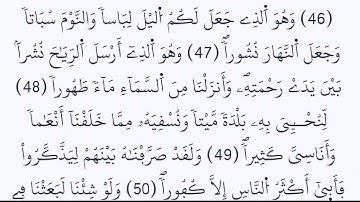 (46) وَهُوَ اَ۬لذِے جَعَلَ لَكُمُ اُ۬ليْلَ لِبَاساٗ وَالنَّوْمَ سُبَاتاٗ
وَجَعَلَ اَ۬لنَّهَارَ نُشُوراٗۖ (47) وَهُوَ اَ۬لذِےٓ أَرْسَلَ اَ۬لرِّيَٰحَ نُشُراَۢ
بَيْنَ يَدَےْ رَحْمَتِهِۦۖ وَأَنزَلْنَا مِنَ اَ۬لسَّمَآءِ مَآءٗ طَهُوراٗ (48)
لِّنُحْۦِيَ بِهِۦ بَلْدَةٗ مَّيْتاٗ وَنُسْقِيَهُۥ مِمَّا خَلَقْنَآ أَنْعَٰماٗ
وَأَنَاسِيَّ كَثِيراٗۖ (49) وَلَقَدْ صَرَّفْنَٰهُ بَيْنَهُمْ لِيَذَّكَّرُواْ
فَأَب۪يٰٓ أَكْثَرُ اُ۬لنَّاسِ إِلَّا كُفُوراٗۖ (50) وَلَوْ شِئْنَا لَبَعَثْنَا فِے